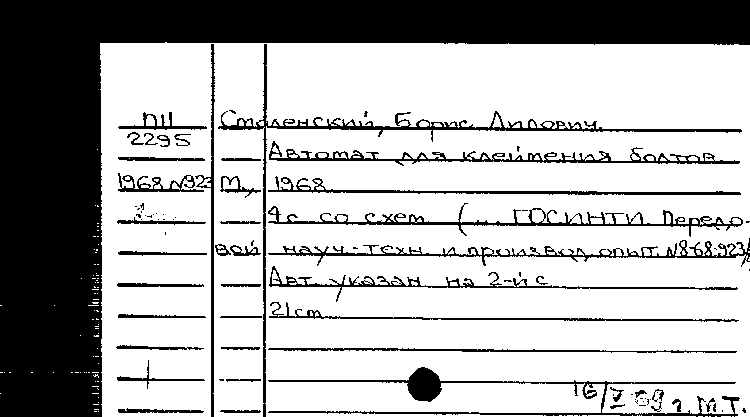 П11 Смоленский, Борис Лилович.
2295 Автомат для клеймения болтов.
1968 N923 М., 1968.
4 с со схем (... ГОСИНТИ. Передо-
вой науч.-техн. и производ. опыт. N8-68-923/
Авт. указан на 2-й с.
21 cm
16/V 69 г. М.Т.